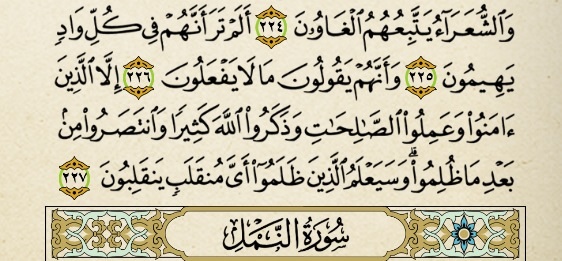 وَٱلشُّعَرَآءُ يَتَّبِعُهُمُ ٱلْغَاوُۥنَ ٢٢٤ أَلَمْ تَرَ أَنَّهُمْ فِى كُلِّ وَادٍ
يَهِيمُونَ ٢٢٥ وَأَنَّهُمْ يَقُولُونَ مَا لَا يَفْعَلُونَ ٢٢٦ إِلَّا ٱلَّذِينَ
ءَامَنُوا۟ وَعَمِلُوا۟ ٱلصَّـٰلِحَـٰتِ وَذَكَرُوا۟ ٱللَّهَ كَثِيرًا وَٱنتَصَرُوا۟ مِنۢ
بَعْدِ مَا ظُلِمُوا۟ ۗ وَسَيَعْلَمُ ٱلَّذِينَ ظَلَمُوٓا۟ أَىَّ مُنقَلَبٍ يَنقَلِبُونَ ٢٢٧
سُورَةُ النَّمْلِ